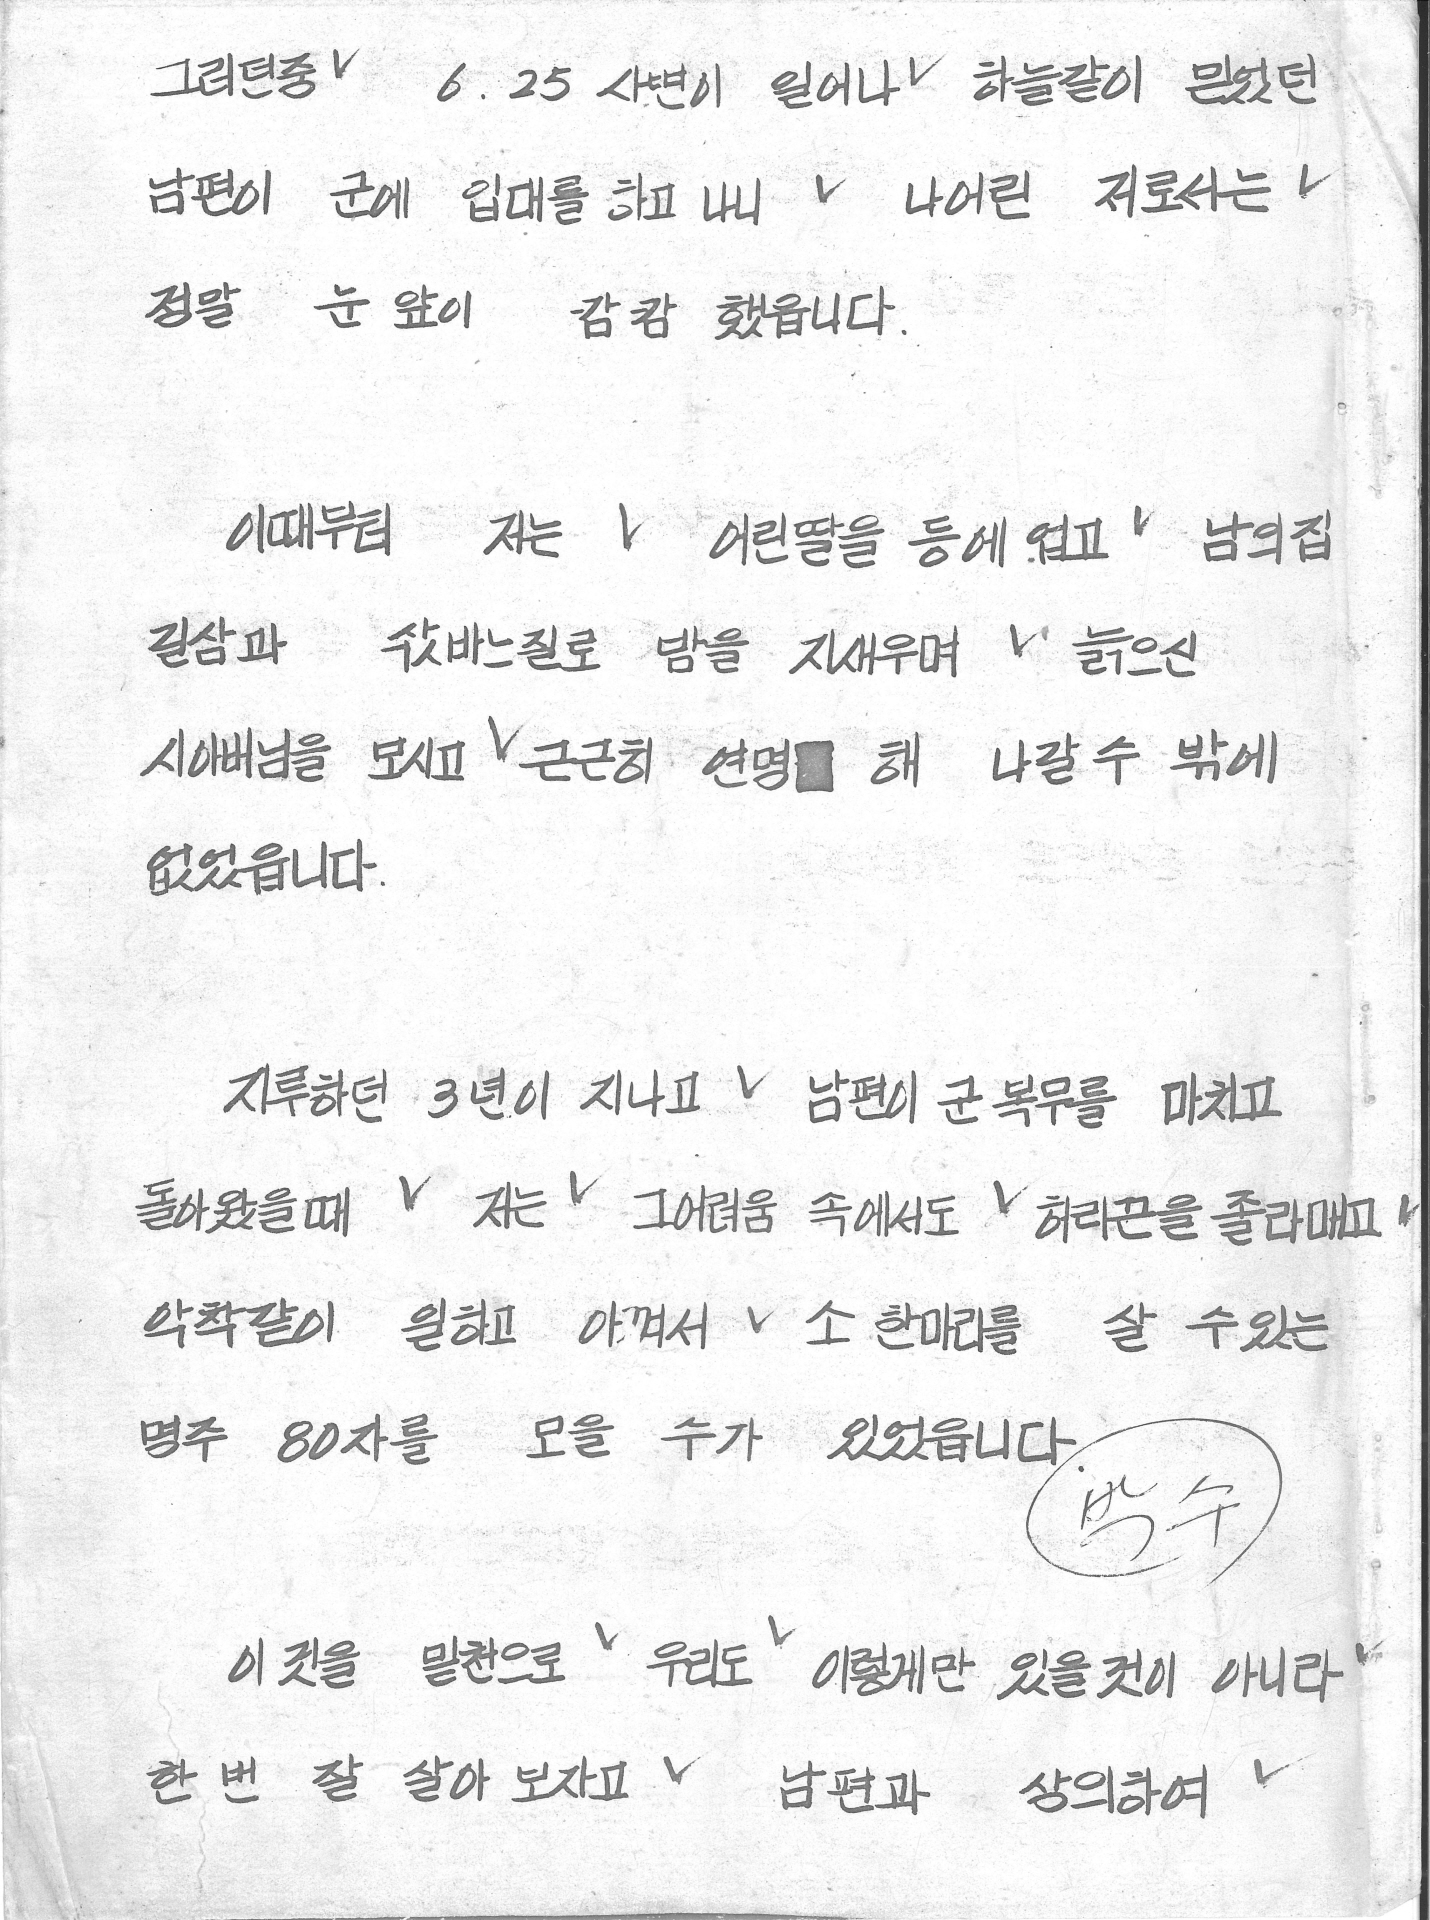 그러던중✓ 6.25 사변이 일어나✓ 하늘같이 믿었던
남편이 군에 입대를 하고 나니 ✓ 나어린 저로서는 ✓
정말 눈 앞이 캄캄 했읍니다.
이때부터 저는 ✓ 어린딸을 등에 업고 ✓ 남의집
길삼과 삿바느질로 밤을 지새우며 ✓ 늙으신
시아버님을 모시고 ✓ 근근히 연명 해 나갈 수 밖에
없었읍니다.
지루하던 3년이 지나고 ✓ 남편이 군 복무를 마치고
돌아왔을때 ✓ 저는 ✓ 그어려움 속에서도 ✓ 허리끈을 졸라매고 ✓
악착같이 일하고 아껴서 ✓ 소 한마리를 살 수 있는
명주 80자를 모을 수가 있었읍니다.
박수
이것을 밑천으로 ✓ 우리도 ✓ 이렇게만 있을것이 아니라 ✓
한번 잘 살아 보자고 ✓ 남편과 상의하여 ✓